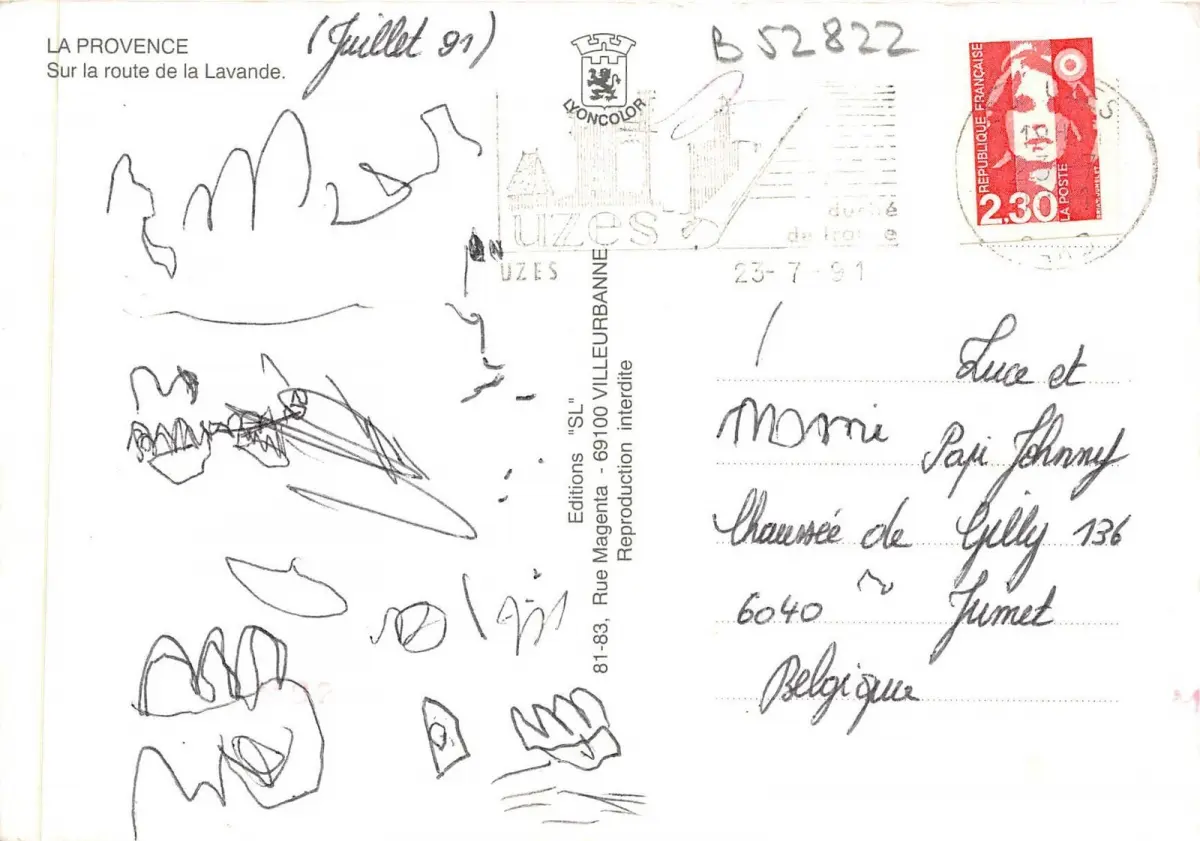 LA PROVENCE
Sur la route de la Lavande.
(Juillet 91)
LYONCOLOR
B 52822
RÉPUBLIQUE FRANÇAISE
2,30
LA POSTE
uzes
duché
de france
UZES
23-7-91
Editions "SL"
81-83, Rue Magenta - 69100 VILLEURBANNE
Reproduction interdite
Luce et
Papi Johnny
Chaussée de Gilly 136
6040 Jumet
Belgique